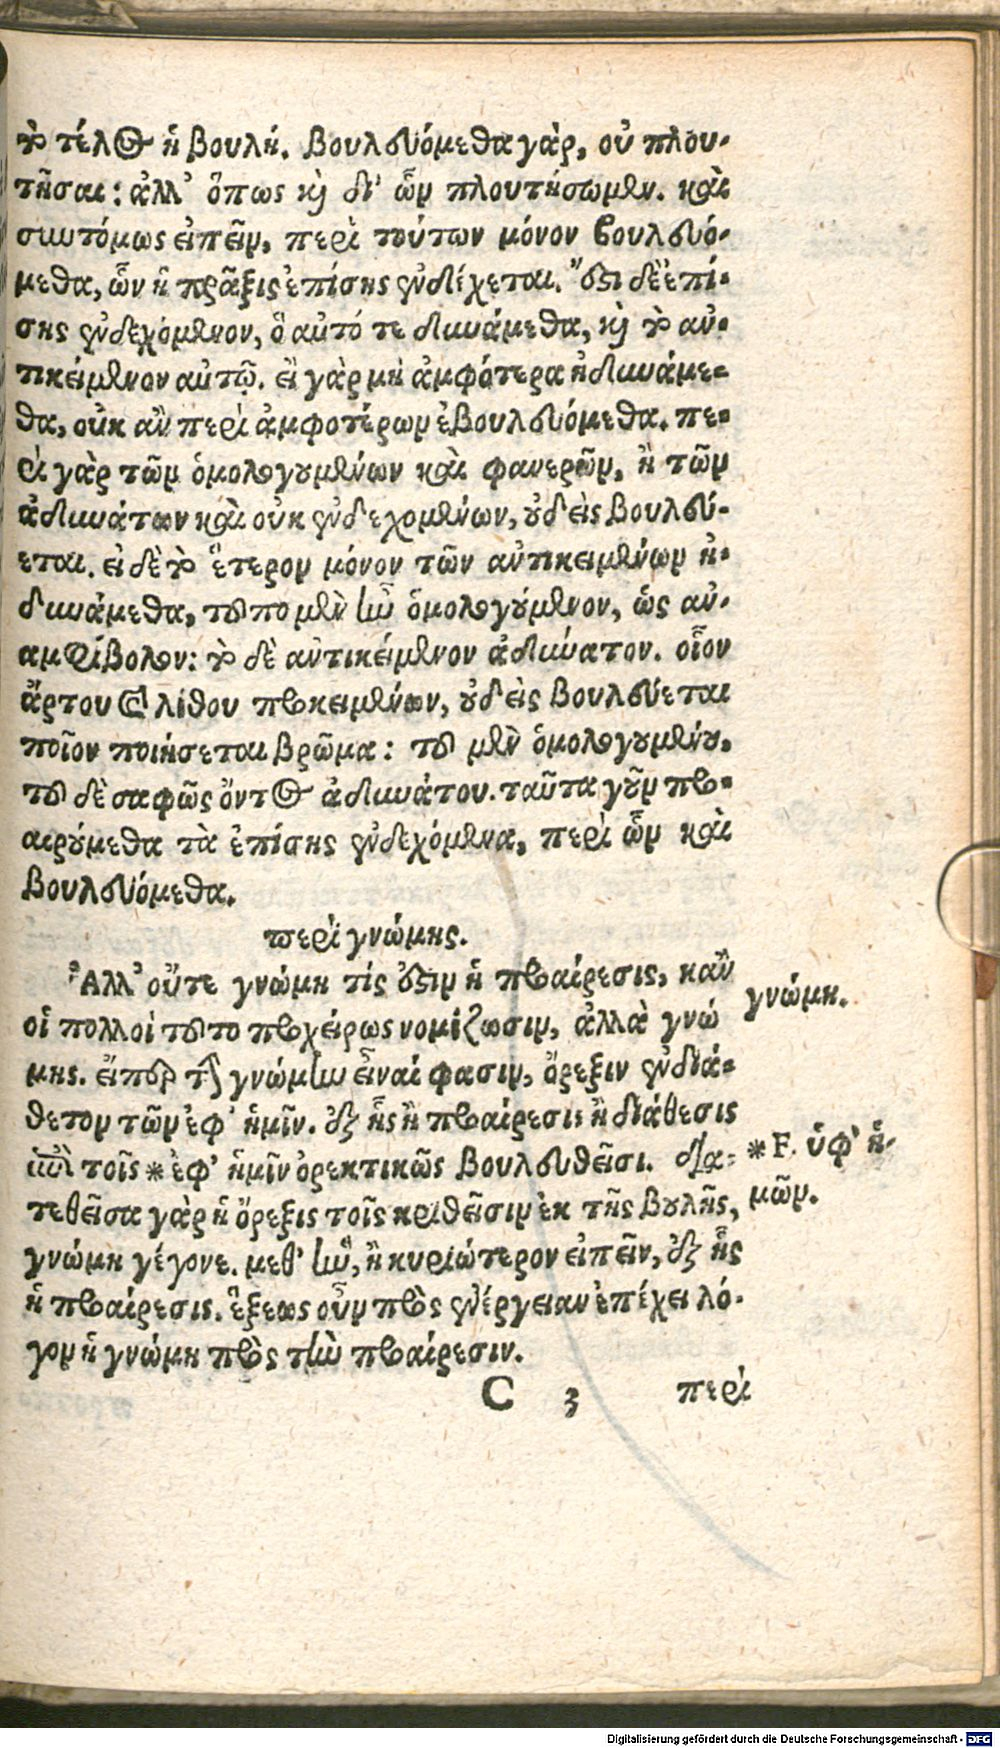 τὸ τέλος ἡ βουλή. βουλευόμεθα γὰρ, οὐ πλου-
τῆσαι: ἀλλ' ὅπως καὶ δι' ὧν πλουτήσωμεν. καὶ
συντόμως εἰπεῖν, περὶ τούτων μόνον βουλευό-
μεθα, ὧν ἡ πρᾶξις ἐπίσης ἐνδέχεται. ἔστι δὲ ἐπί-
σης ἐνδεχόμενον, ὃ αὐτό τε δυνάμεθα, καὶ τὸ ἀν-
τικείμενον αὐτῷ. εἰ γὰρ μὴ ἀμφότερα ἠδυνάμε-
θα, οὐκ ἂν περὶ ἀμφοτέρων ἐβουλευόμεθα. πε-
ρὶ γὰρ τῶν ὁμολογουμένων καὶ φανερῶν, ἢ τῶν
ἀδυνάτων καὶ οὐκ ἐνδεχομένων, οὐδεὶς βουλεύ-
εται. εἰ δὲ τὸ ἕτερον μόνον τῶν ἀντικειμένων ἠ-
δυνάμεθα, τοῦτο μὲν ἦν ὁμολογούμενον, ὡς ἀν-
αμφίβολον: τὸ δὲ ἀντικείμενον ἀδύνατον. οἷον
ἄρτου καὶ λίθου προκειμένων, οὐδεὶς βουλεύεται
ποῖον ποιήσεται βρῶμα: τοῦ μὲν ὁμολογουμένου,
τοῦ δὲ σαφῶς ὄντος ἀδυνάτου. ταῦτα γοῦν προ-
αιρούμεθα τὰ ἐπίσης ἐνδεχόμενα, περὶ ὧν καὶ
βουλευόμεθα.
περὶ γνώμης.
Ἀλλ' οὔτε γνώμη τίς ἐστιν ἡ προαίρεσις, κἂν
οἱ πολλοὶ τοῦτο προχείρως νομίζωσιν, ἀλλὰ γνώ
μης. εἴπερ τὴν γνώμην εἶναί φασιν, ὄρεξιν ἐνδιά-
θετον τῶν ἐφ' ἡμῖν. ἐξ ἧς ἡ προαίρεσις ἢ διάθεσις
ἐπὶ τοῖς * ἐφ' ἡμῖν ὀρεκτικῶς βουλευθεῖσι. δια-
τεθεῖσα γὰρ ἡ ὄρεξις τοῖς κριθεῖσιν ἐκ τῆς βουλῆς,
γνώμη γέγονε. μεθ' ἣν, ἢ κυριώτερον εἰπεῖν, ἐξ ἧς
ἡ προαίρεσις. ἕξεως οὖν πρὸς ἐνέργειαν ἐπέχει λό-
γον ἡ γνώμη πρὸς τὴν προαίρεσιν.
C 3 περὶ
γνώμη.
* F. ὑφ' ἡ-
μῶν.
Digitalisierung gefördert durch die Deutsche Forschungsgemeinschaft - DFG